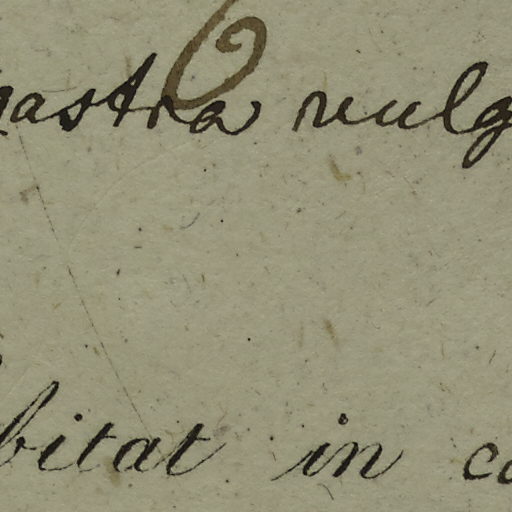 nastra vulg
bitat in co